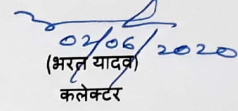 02/06/2020
(भरत यादव)
कलेक्टर